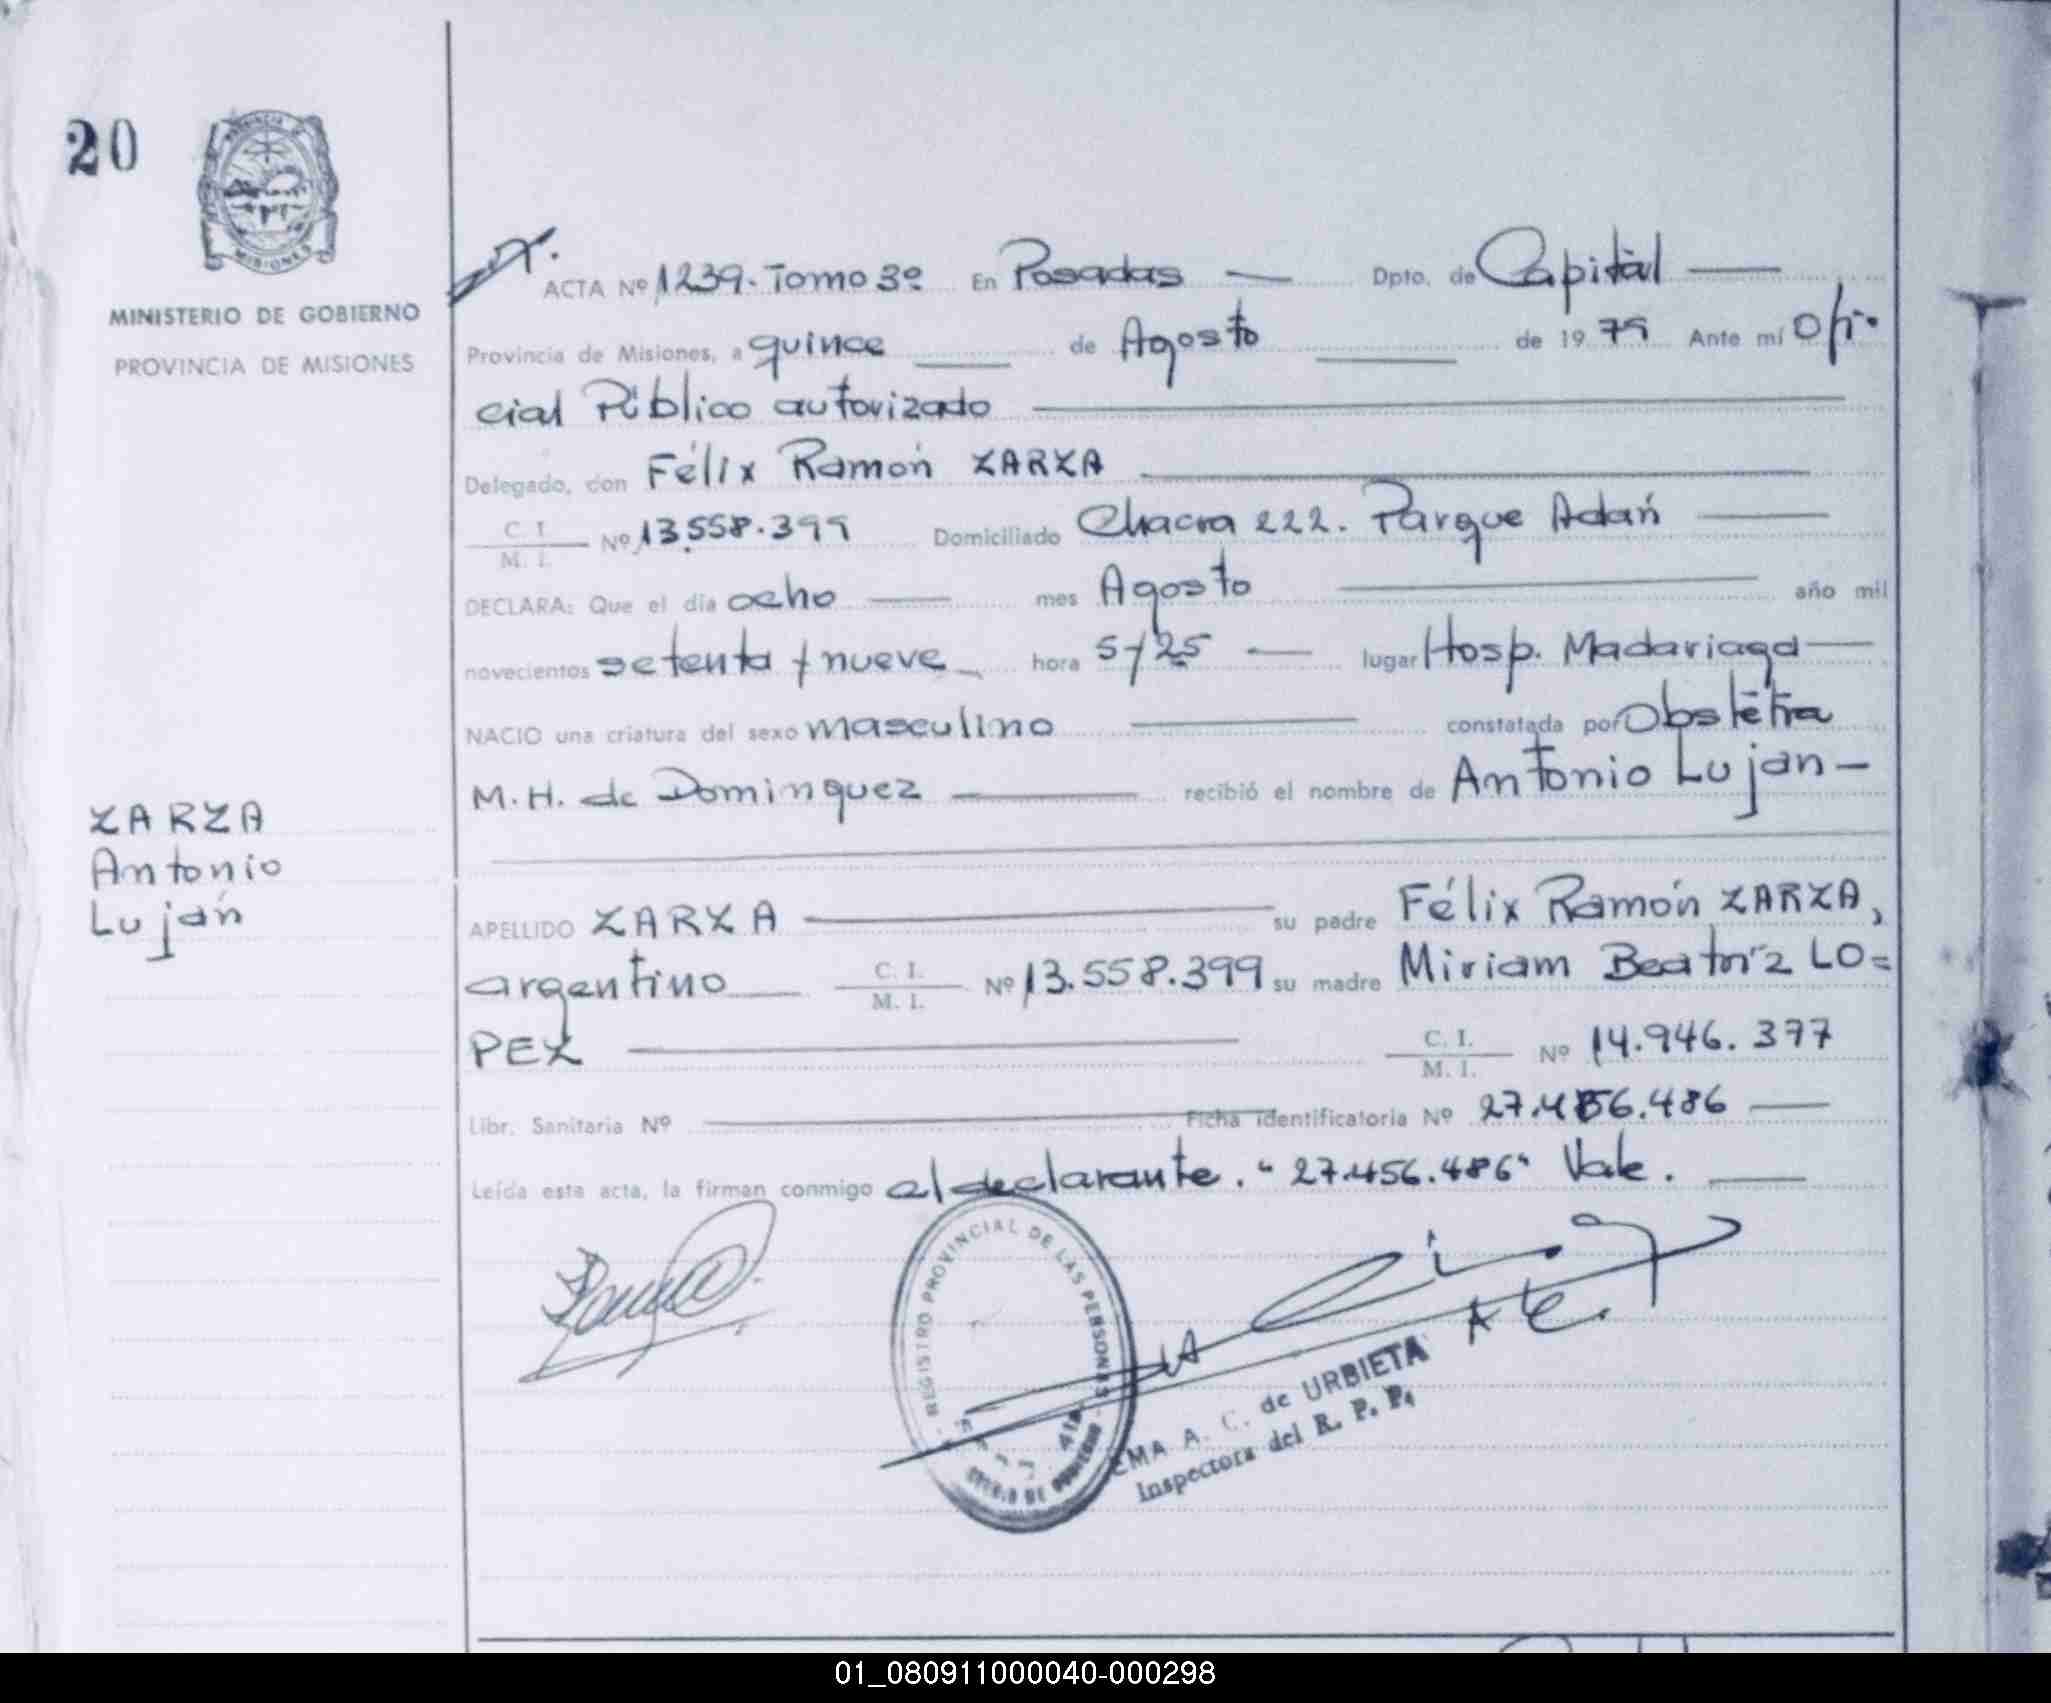 20
PROVINCIA DE
MISIONES
MINISTERIO DE GOBIERNO
PROVINCIA DE MISIONES
ZARZA
Antonio
Luján
ACTA Nº 1239. Tomo 3º En Posadas Dpto. de Capital
Provincia de Misiones, a quince de Agosto de 1979 Ante mí Ofi-
cial Público autorizado
Delegado, don Félix Ramón ZARZA
C. I.
M. I.
Nº 13.558.399 Domiciliado Chacra 222. Parque Adán
DECLARA: Que el día ocho mes Agosto año mil
novecientos setenta y nueve hora 5/25 lugar Hosp. Madariaga
NACIO una criatura del sexo masculino constatada por Obstetra
M. H. de Dominguez recibió el nombre de Antonio Lujan-
APELLIDO ZARZA su padre Félix Ramón ZARZA,
argentino C. I. M. I. Nº 13.558.399 su madre Miriam Beatriz LO=
PEZ C. I. M. I. Nº 14.946.377
Libr. Sanitaria Nº Ficha identificatoria Nº 27.456.486
Leída esta acta, la firman conmigo el declarante. "27.456.486" Vale.
REGISTRO PROVINCIAL DE LAS PERSONAS
A. C. de URBIETA
Inspectora del R. P. P.
01_080911000040-000298